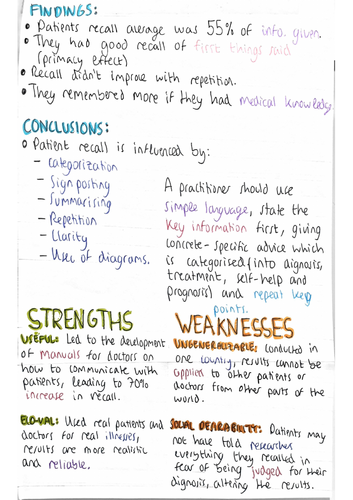 FINDINGS:
• Patients recall average was 55% of info. given.
• They had good recall of first things said
(primacy effect)
• Recall didn't improve with repetition.
• They remembered more if they had medical knowledge.
CONCLUSIONS:
• Patient recall is influenced by:
– categorization
– Sign posting
– Summarising
– Repetition
– Clarity
– Use of diagrams.
A practitioner should use
simple language, state the
Key information first, giving
concrete-specific advice which
is categorised (into diagnosis,
treatment, self-help and
prognosis) and repeat key
points.
STRENGTHS
USEFUL: Led to the development
of manuals for doctors on
how to communicate with
patients, leading to 70%
increase in recall.
ECO.VAL: Used real patients and
doctors for real illnesses,
results are more realistic
and reliable.
WEAKNESSES
UNGENERALIZABLE: Conducted in
one country, results cannot be
applied to other patients or
doctors from other parts of the
world.
SOCIAL DESIRABILITY: Patients may
not have told researchers
everything they recalled in
fear of being judged for their
diagnosis, altering the results.